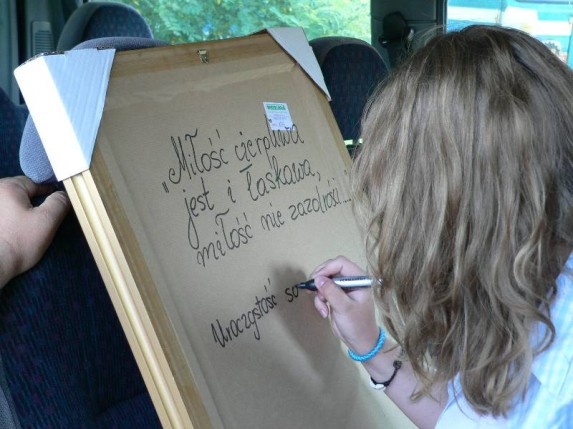 "Miłość cierpliwa
jest i łaskawa,
miłość nie zazdrości..."
Uroczystość so